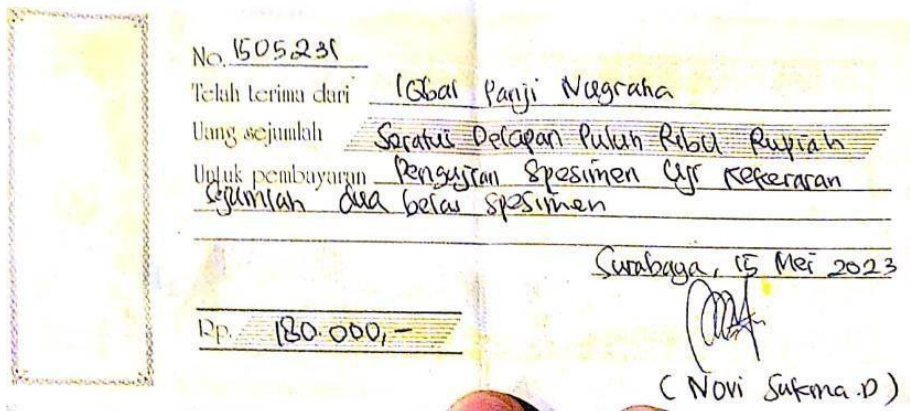 No. 1505231
Telah terima dari Iqbal Panji Nugraha
Uang sejumlah Seratus Delapan Puluh Ribu Rupiah
Untuk pembayaran Pengujian Spesimen Uji Kekerasan
sejumlah dua belas spesimen
Surabaya, 15 Mei 2023
Rp. 180.000,-
( Novi Sukma.D )